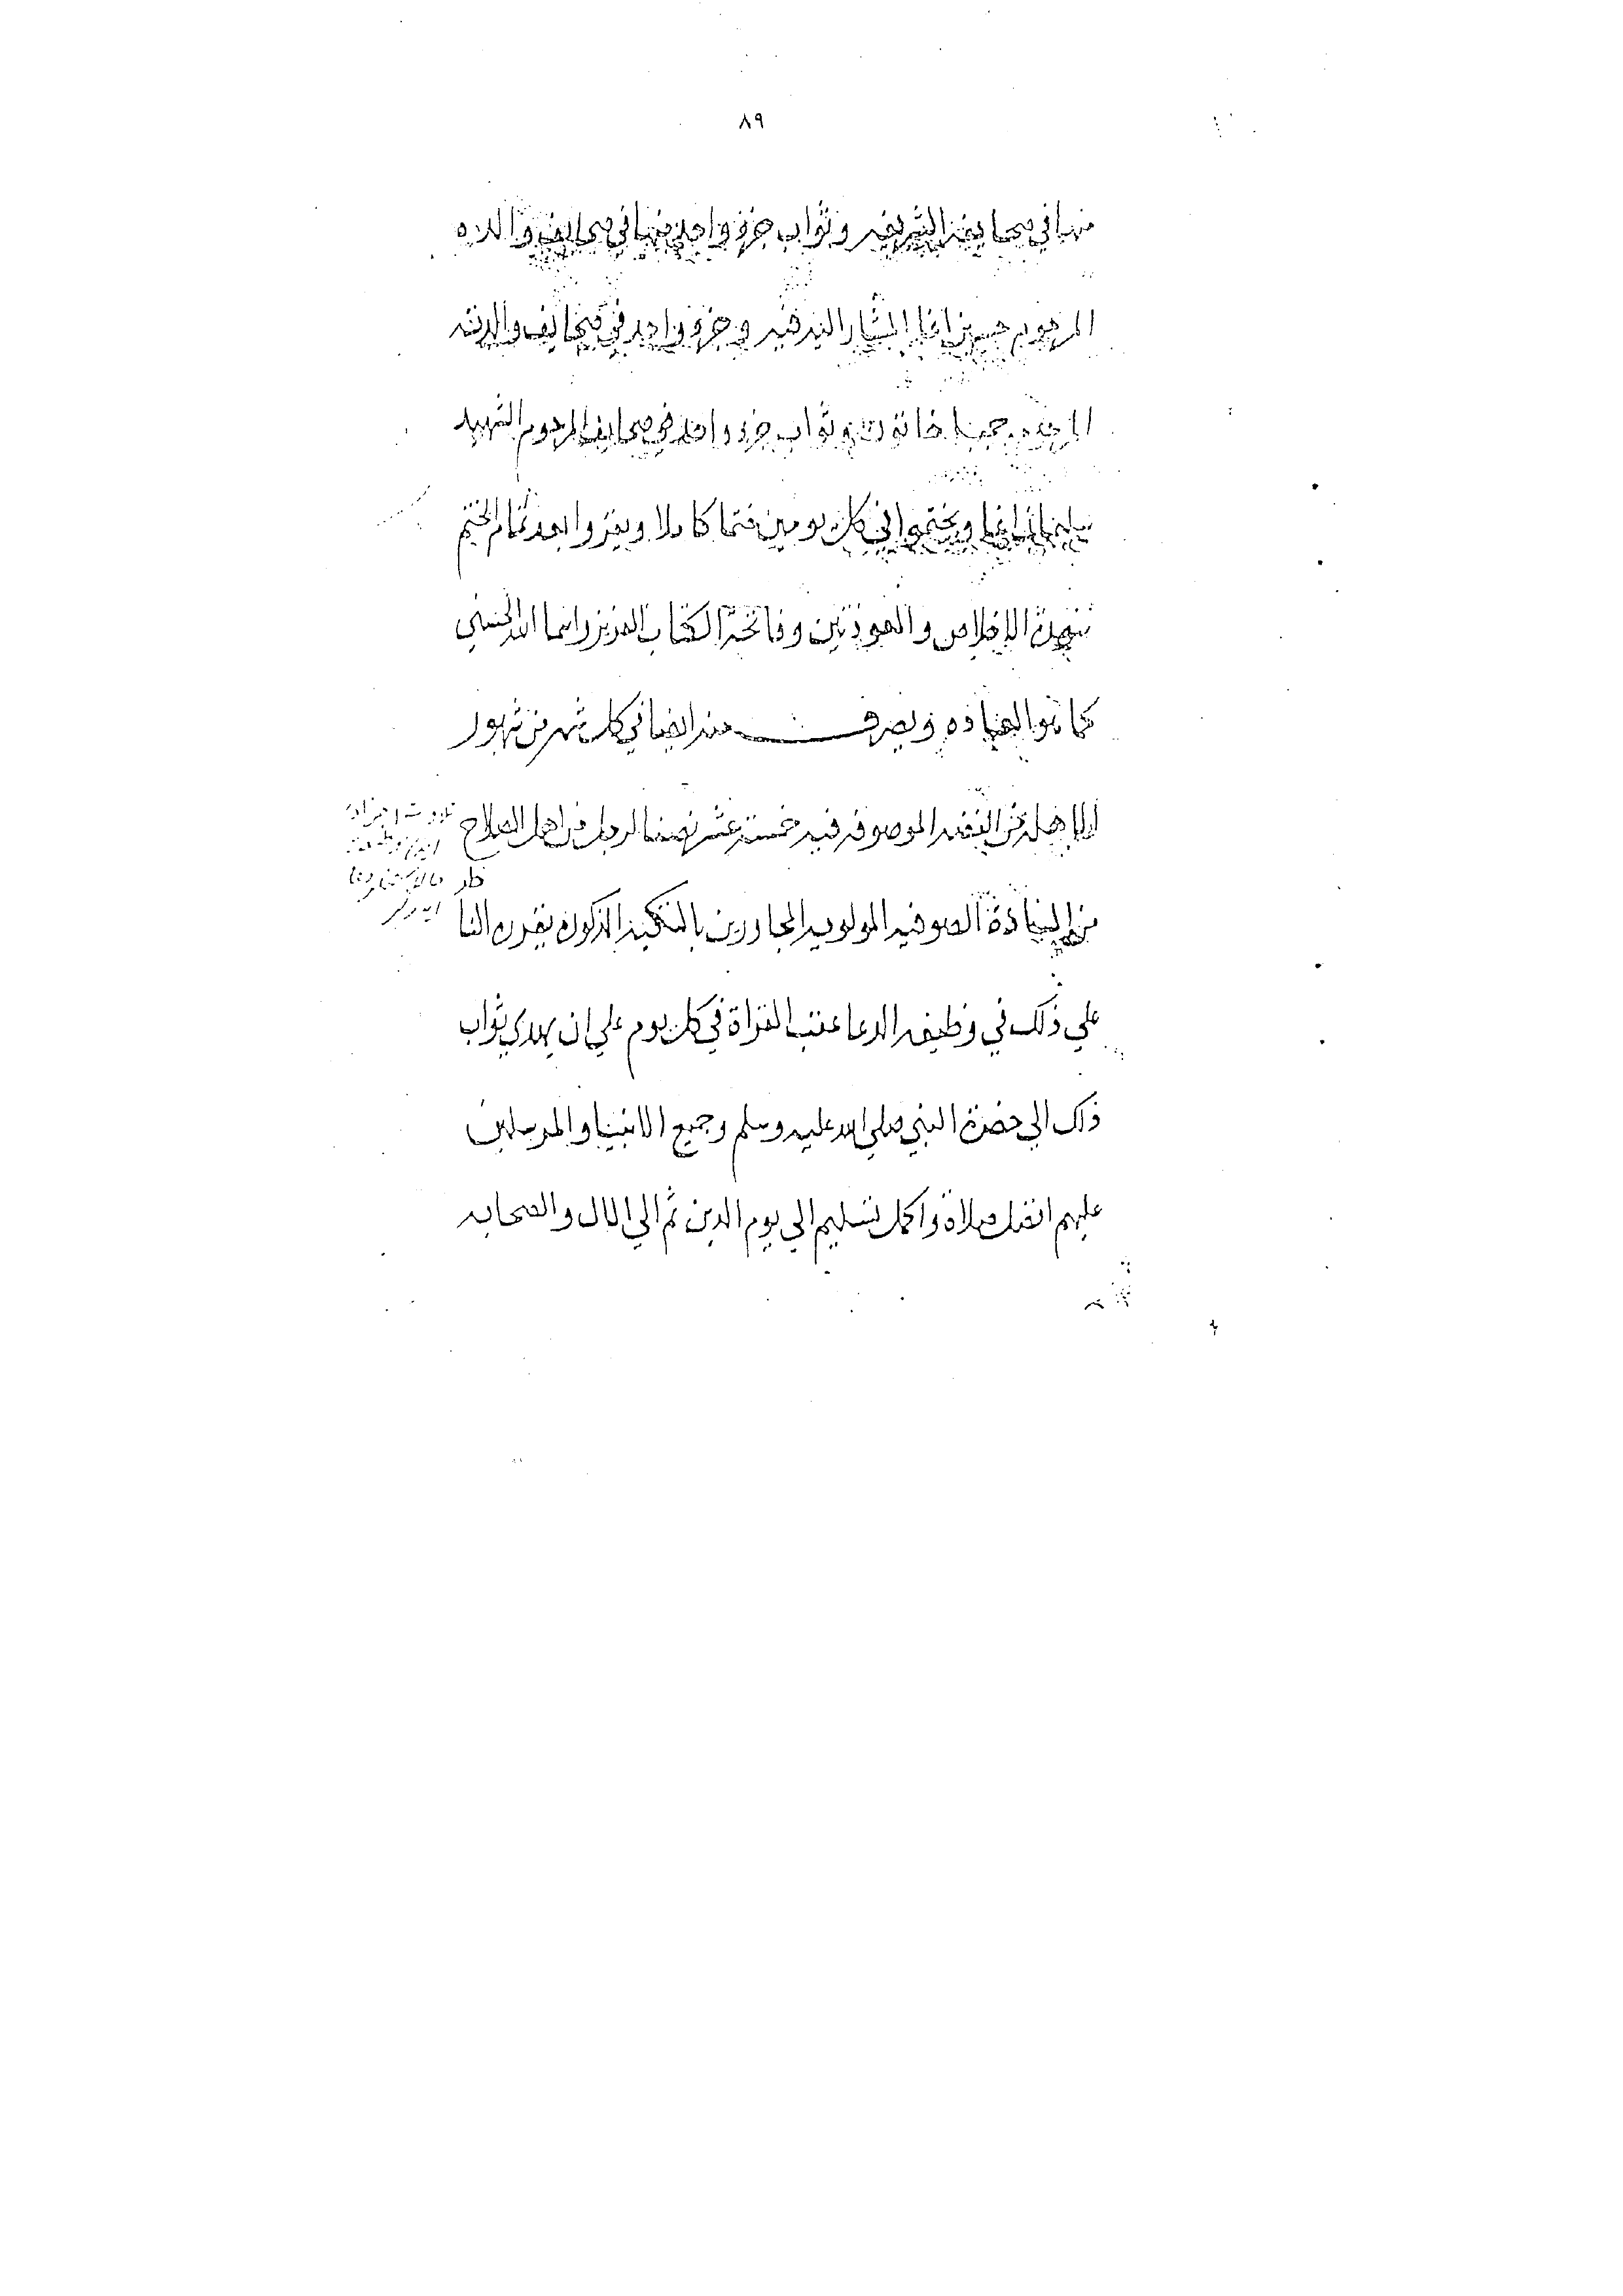 ٨٩
منها في صحايفه الشريفه وثواب جزؤ واحد منها في صحايف والده
المرحوم حسين اغا المشار اليه فيه وجزؤ واحد في صحايف والدته
المرحومه خاتون وثواب جزؤ واحد في صحايف المرحوم الشهيد
سليمان اغا ويختموا في كل يومين ختما كاملا ويقروا بعد تمام الختم
سورة الاخلاص والمعوذتين وفاتحة الكتاب العزيز واسما الله الحسني
كما هو العاده ويصرف منه ايضا في كل شهر من شهور
الاهله من الفضه الموصوفه فيه خمسة عشر نصفا لرجل من اهل الصلاح
من السادة الصوفيه المولويه المجاورين بالتكيه المذكوره يقرره الناظر
علي ذلك في وظيفه الدعا عقب القراة في كل يوم علي ان يهدي ثواب
ذلك الي حضرة النبي صلي الله عليه وسلم وجميع الانبيا والمرسلين
عليهم افضل صلاة واكمل تسليم الي يوم الدين ثم الي الال والصحابه